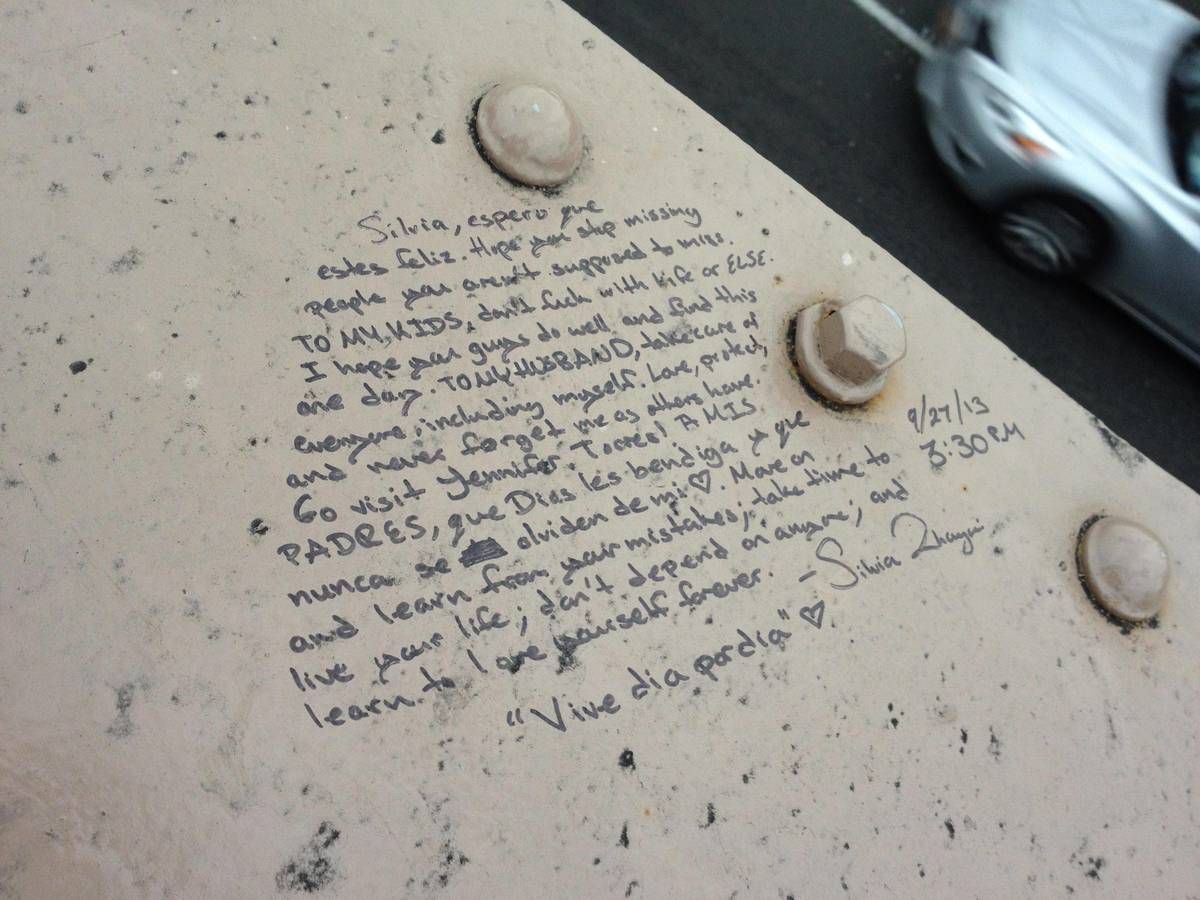 Silvia, espero que
estes feliz. Hope you stop missing
people you aren't supposed to miss.
TO MY KIDS, don't fuck with life or ELSE.
I hope you guys do well and find this
one day. TO MY HUSBAND, take care of
everyone, including myself. Love, protect,
and never forget me as others have.
Go visit Jennifer Torres! A MIS
PADRES, que Dios les bendiga y que
nunca se olviden de mi ♡. Move on
and learn from your mistakes; take time to
live your life; don't depend on anyone; and
learn to love yourself forever.
- Silvia
9/27/13
3:30PM
"Vive dia por dia" ♡